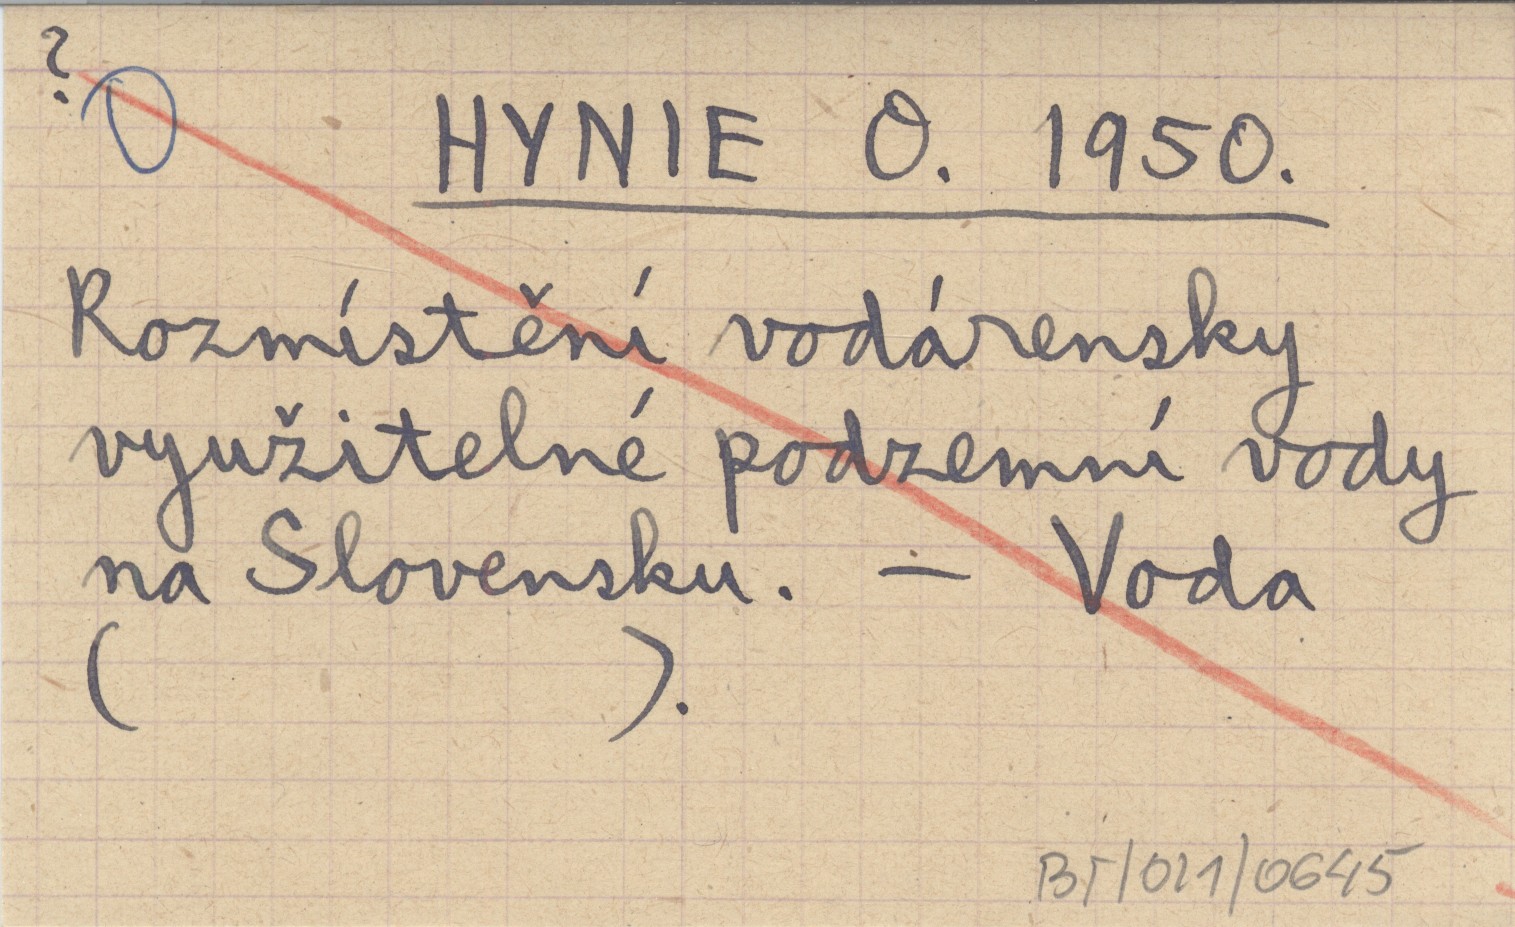 ?
HYNIE O. 1950.
Rozmístění vodárensky
využitelné podzemní vody
na Slovensku. — Voda
( ).
BT/011/0645